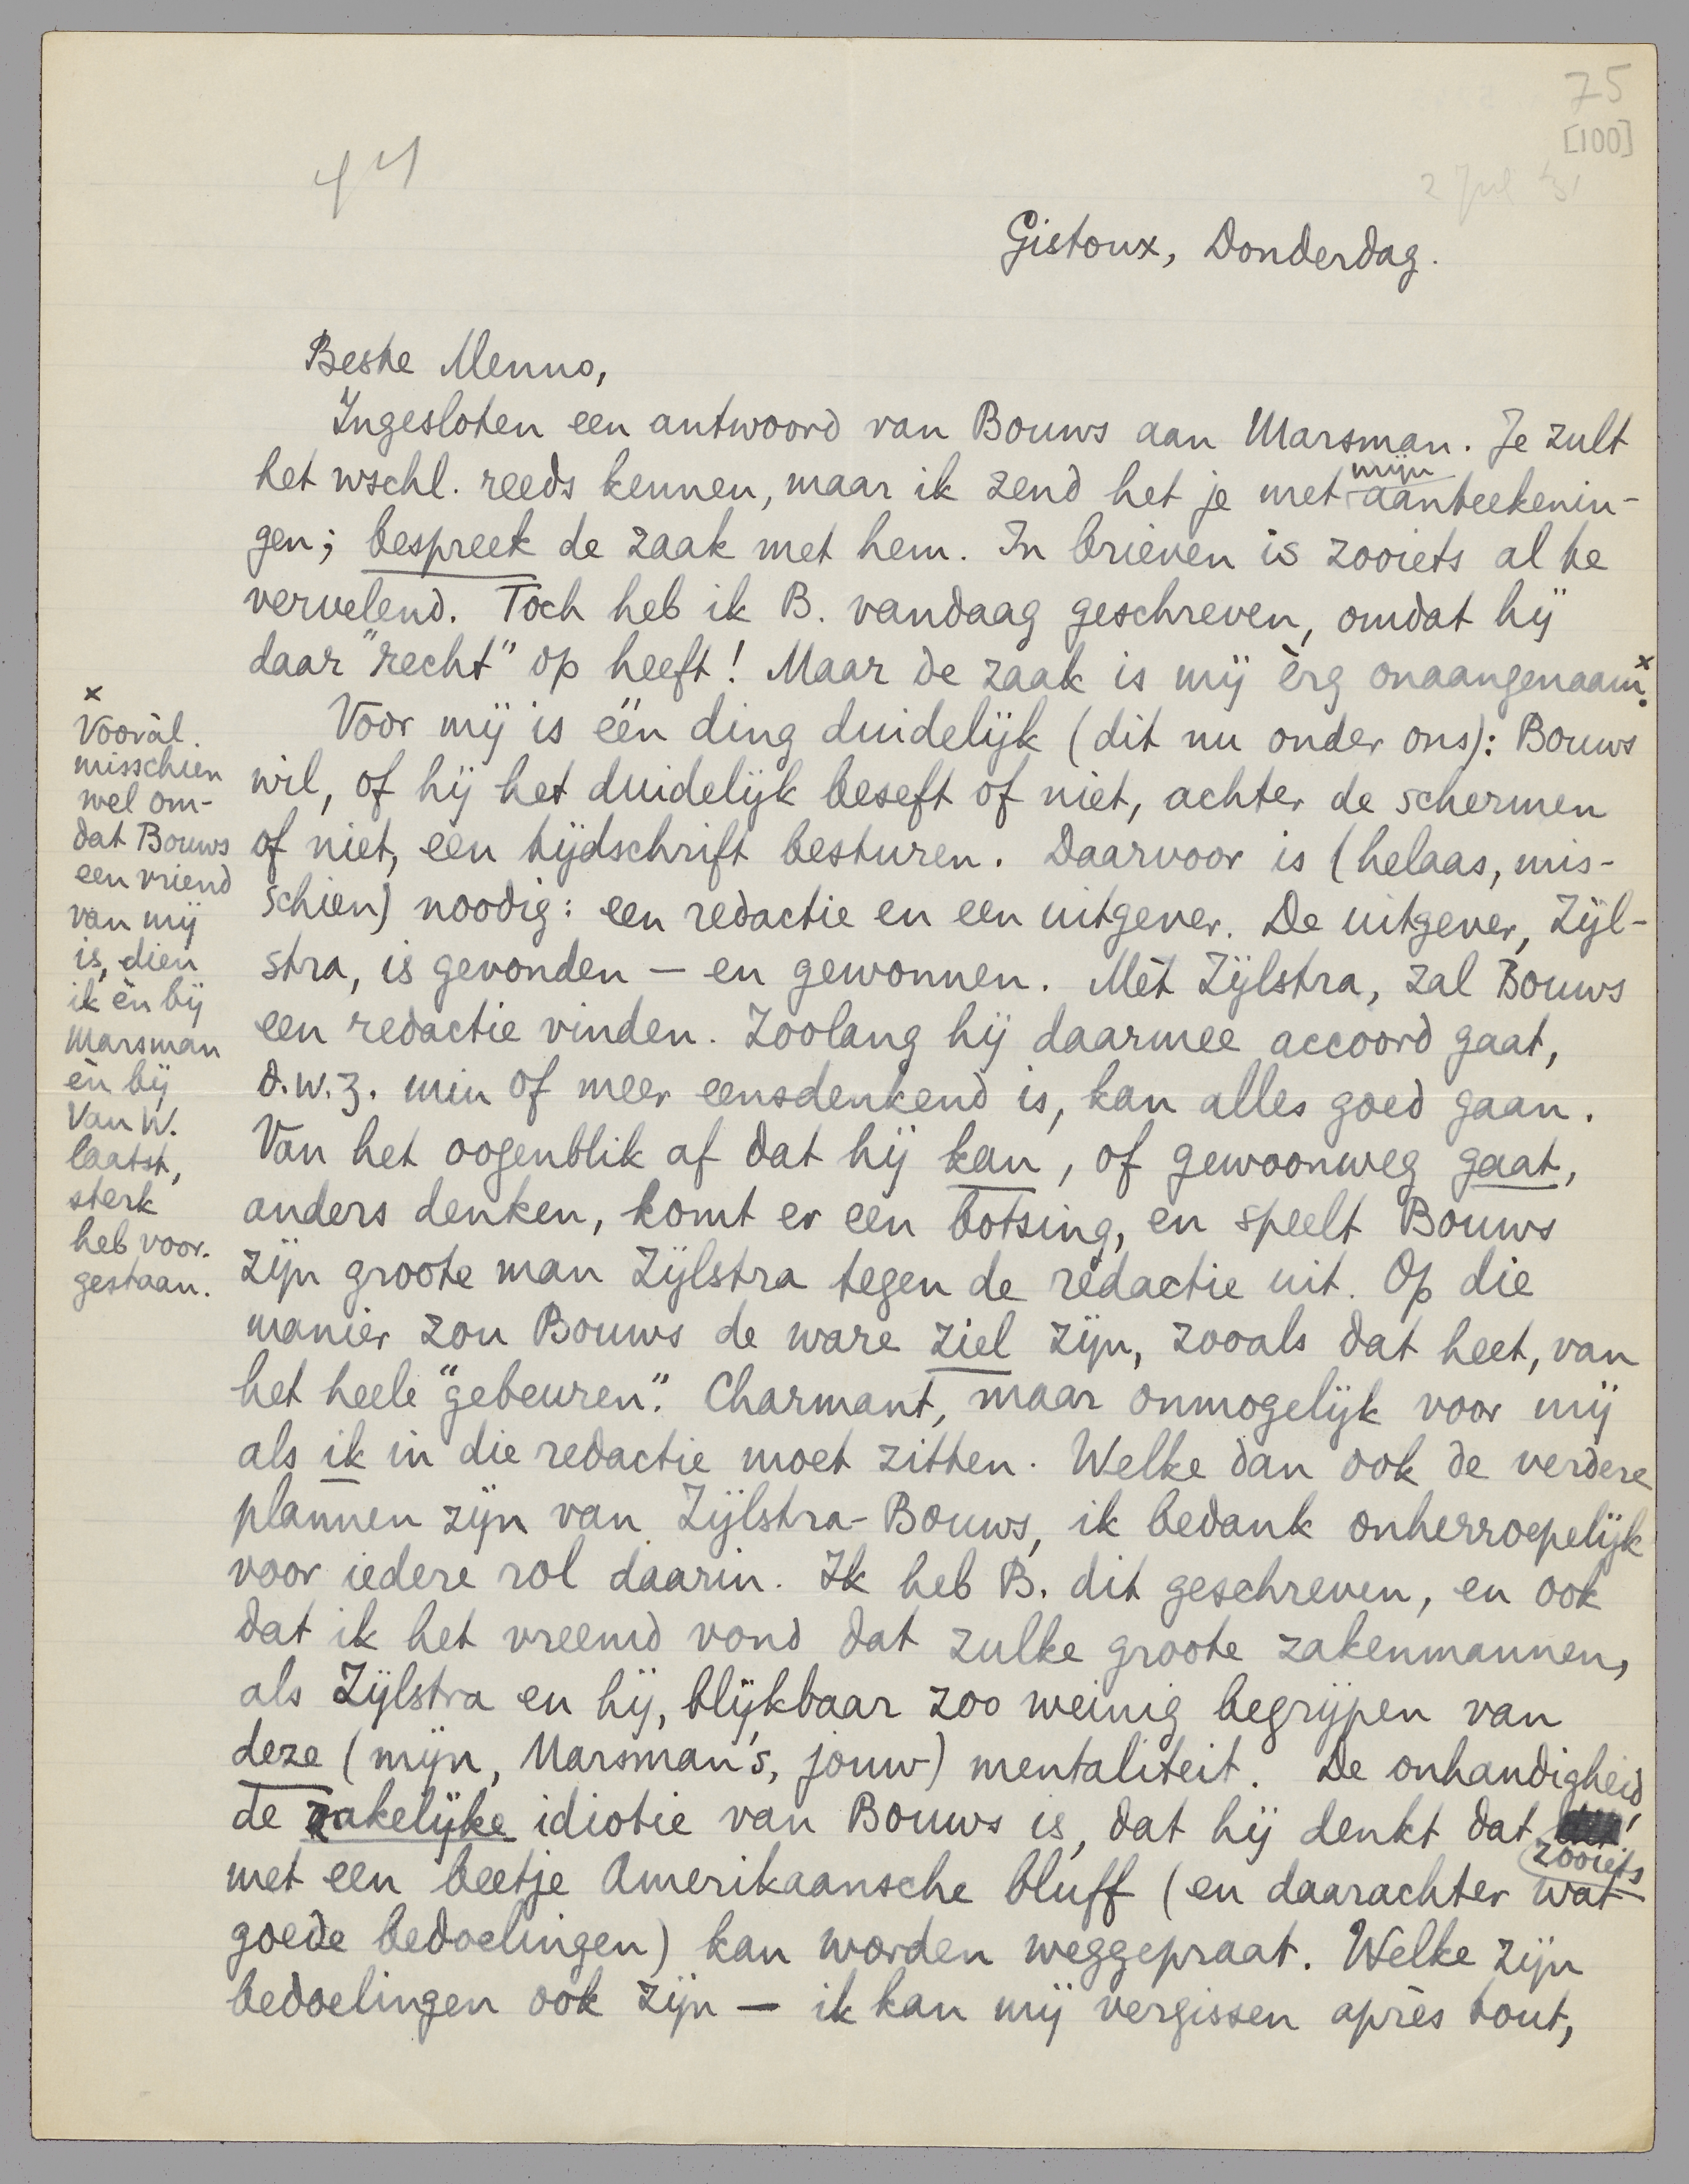 75
[100]
2 Jul '31
Gistoux, Donderdag.
Beste Menno,
Ingesloten een antwoord van Bouws aan Marsman. Je zult
het wschl. reeds kennen, maar ik zend het je met mijn aanteekenin-
gen; bespreek de zaak met hem. In brieven is zooiets al te
vervelend. Toch heb ik B. vandaag geschreven, omdat hij
daar "recht" op heeft! Maar de zaak is mij èrg onaangenaam.x
Voor mij is één ding duidelijk (dit nu onder ons): Bouws
wil, of hij het duidelijk beseft of niet, achter de schermen
of niet, een tijdschrift besturen. Daarvoor is (helaas, mis-
schien) noodig: een redactie en een uitgever. De uitgever, Zijl-
stra, is gevonden — en gewonnen. Mèt Zijlstra, zal Bouws
een redactie vinden. Zoolang hij daarmee accoord gaat,
d.w.z. min of meer eensdenkend is, kan alles goed gaan.
Van het oogenblik af dat hij kan, of gewoonweg gaat,
anders denken, komt er een botsing, en speelt Bouws
zijn groote man Zijlstra tegen de redactie uit. Op die
manier zou Bouws de ware ziel zijn, zooals dat heet, van
het heele "gebeuren". Charmant, maar onmogelijk voor mij
als ik in die redactie moet zitten. Welke dan ook de verdere
plannen zijn van Zijlstra-Bouws, ik bedank onherroepelijk
voor iedere rol daarin. Ik heb B. dit geschreven, en ook
dat ik het vreemd vond dat zulke groote zakenmannen,
als Zijlstra en hij, blijkbaar zoo weinig begrijpen van
deze (mijn, Marsman's, jouw) mentaliteit. De onhandigheid,
de zakelijke idiotie van Bouws is, dat hij denkt dat zooiets
met een beetje Amerikaansche bluff (en daarachter wat
goede bedoelingen) kan worden weggepraat. Welke zijn
bedoelingen ook zijn — ik kan mij vergissen après tout,
x
Vooràl
misschien
wel om-
dat Bouws
een vriend
van mij
is, dien
ik èn bij
Marsman
èn bij
Van W.
laatst,
sterk
heb voor-
gestaan.